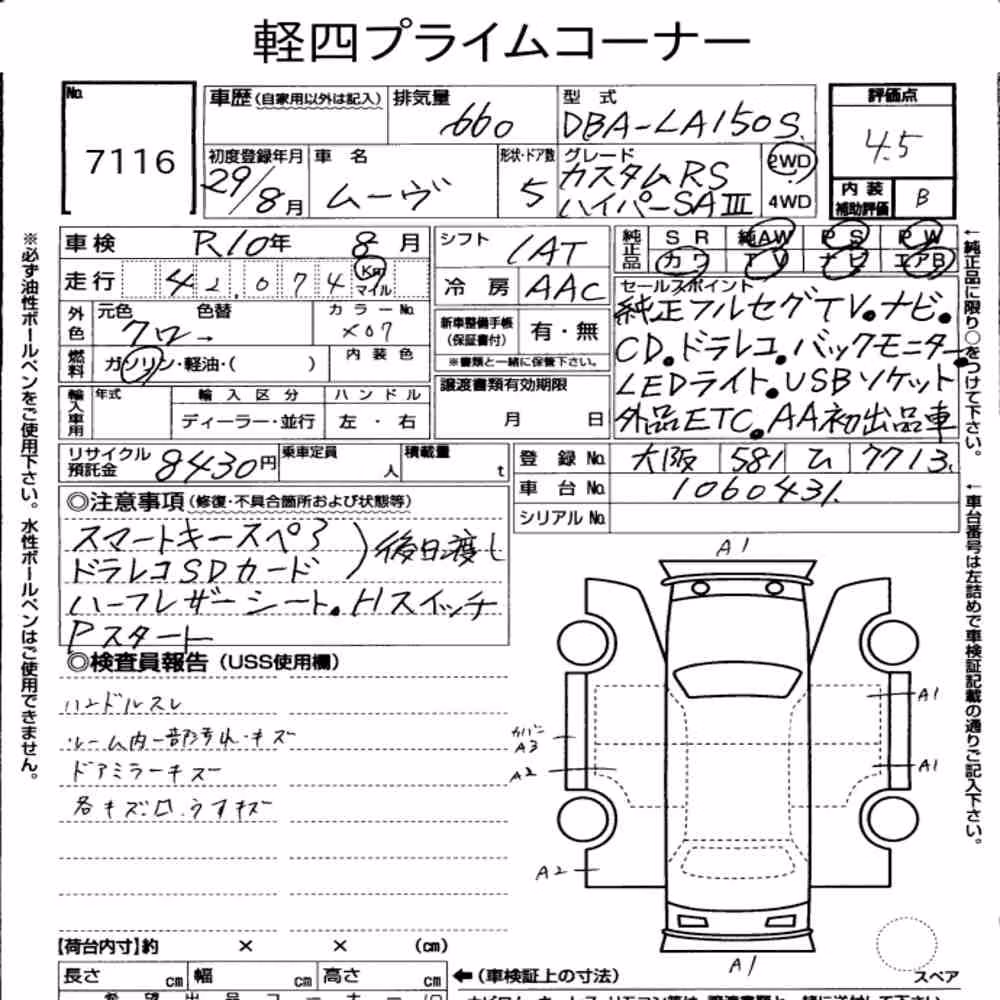 軽四プライムコーナー
No.
7116
車歴 (自家用以外は記入)
排気量
660
型式
DBA-LA150S
評価点
4.5
内装補助評価 B
初度登録年月
29/8月
車名
ムーヴ
形状・ドア数
5
グレード
カスタムRS
ハイパーSAⅢ
2WD
4WD
車検 R10年 8月
走行 42,074 Km マイル
外色 元色 色替 カラーNo.
クロ X07
燃料 ガソリン・軽油・( ) 内装色
輸入車用 年式 輸入区分 ハンドル
ディーラー・並行 左・右
シフト 1AT
冷房 AAC
新車整備手帳(保証書付) 有・無
※書類と一緒に保管下さい。
譲渡書類有効期限
月 日
純正品 SR 純AW PS PW
カワ TV ナビ エアB
セールスポイント
純正フルセグTV.ナビ.
CD.ドラレコ.バックモニター
LEDライト.USBソケット
外品ETC.AA初出品車
リサイクル預託金 8430円 乗車定員 人 積載量 t
登録No. 大阪 581 ひ 7713
車台No. 1060431
シリアルNo.
◎注意事項(修復・不具合箇所および状態等)
スマートキースペ3
ドラレコSDカード
)後日渡し
ハーフレザーシート.Hスイッチ
Pスタート
◎検査員報告(USS使用欄)
ハンドルスレ
ルーム内一部汚れ・キズ
ドアミラーキズ
各キズ.ロ.ウスキズ
A1
A1
A1
カバー
A3
A2
A2
A1
スペア
【荷台内寸】約 × × (cm)
長さ cm 幅 cm 高さ cm
←(車検証上の寸法)
※必ず油性ボールペンをご使用下さい。水性ボールペンはご使用できません。
←純正品に限り○をつけて下さい。
←車台番号は左詰めで車検証記載の通りご記入下さい。